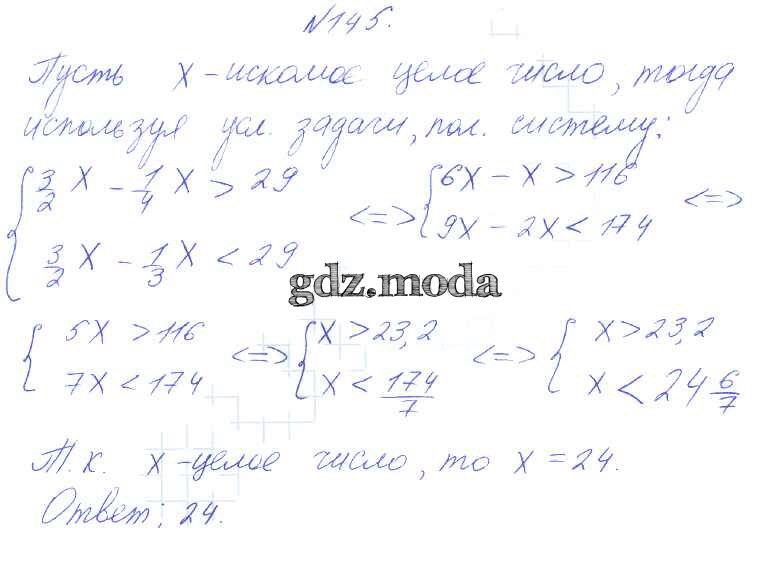 №145.
Пусть x - искомое целое число, тогда
используя усл. задачи, пол. систему:
{ 3/2 x - 1/4 x > 29 <=> { 6x - x > 116 <=>
3/2 x - 1/3 x < 29 9x - 2x < 174
gdz.moda
{ 5x > 116 <=> { x > 23,2 <=> { x > 23,2
7x < 174 x < 174/7 x < 24 6/7
Т.к. x - целое число, то x = 24.
Ответ: 24.